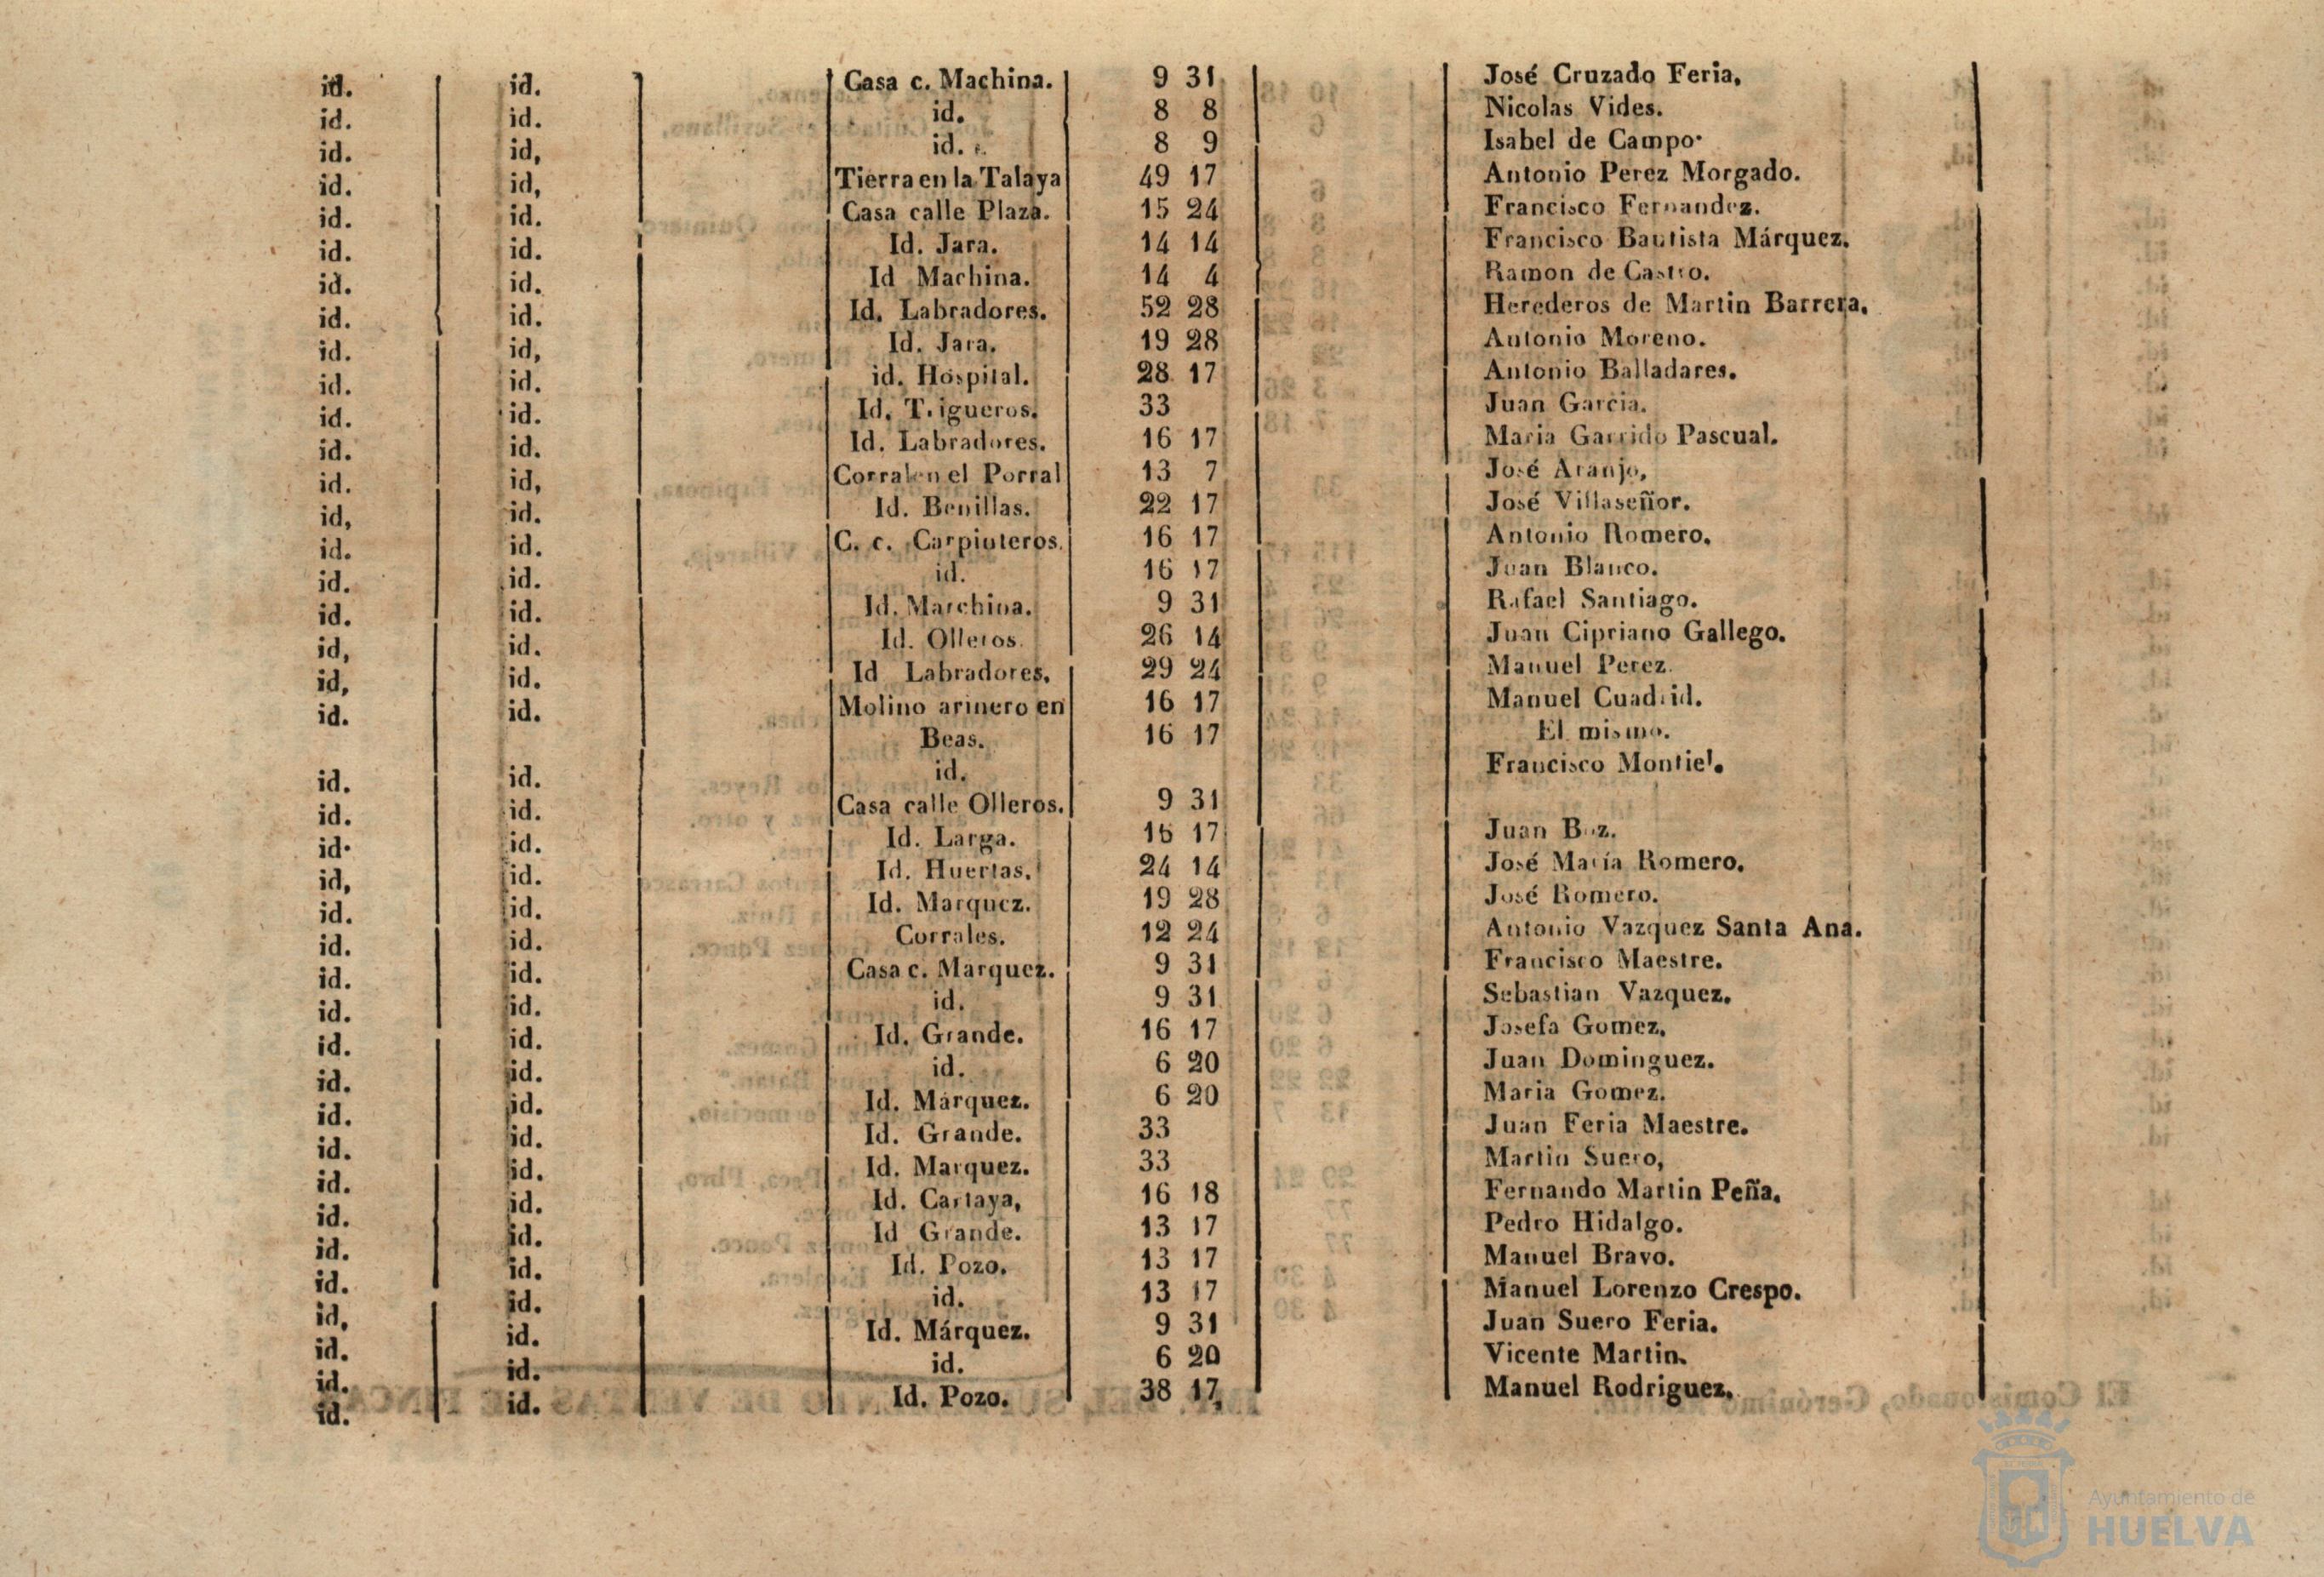 id. id. Casa c. Machina. 9 31 José Cruzado Feria,
id. id. id. 8 8 Nicolas Vides.
id. id, id. 8 9 Isabel de Campo.
id. id, Tierra en la Talaya 49 17 Antonio Perez Morgado.
id. id. Casa calle Plaza. 15 24 Francisco Fernandez.
id. id. Id. Jara. 14 14 Francisco Bautista Márquez.
id. id. Id Machina. 14 4 Ramon de Castro.
id. id. Id. Labradores. 52 28 Herederos de Martin Barrera.
id. id, Id. Jara. 19 28 Antonio Moreno.
id. id. id. Hospital. 28 17 Antonio Balladares.
id. id. Id. T.igueros. 33 Juan Garcia.
id. id. Id. Labradores. 16 17 Maria Garrido Pascual.
id. id, Corral en el Porral 13 7 José Aranjo,
id, id. Id. Benillas. 22 17 José Villaseñor.
id. id. C. c. Carpinteros. 16 17 Antonio Romero.
id. id. id. 16 17 Juan Blanco.
id. id. Id. Marchina. 9 31 Rafael Santiago.
id, id. Id. Olleros. 26 14 Juan Cipriano Gallego.
id, id. Id Labradores. 29 24 Manuel Perez.
id. id. Molino arinero en 16 17 Manuel Cuadrid.
Beas. 16 17 El mismo.
id. id. id. Francisco Montiel.
id. id. Casa calle Olleros. 9 31
id. id. Id. Larga. 16 17 Juan
id, id. Id. Huertas. 24 14 José María Romero.
id. id. Id. Marquez. 19 28 José Romero.
id. id. Corrales. 12 24 Antonio Vazquez Santa Ana.
id. id. Casa c. Marquez. 9 31 Francisco Maestre.
id. id. id. 9 31 Sebastian Vazquez.
id. id. Id. Grande. 16 17 Josefa Gomez.
id. id. id. 6 20 Juan Dominguez.
id. id. Id. Márquez. 6 20 Maria Gomez.
id. id. Id. Grande. 33 Juan Feria Maestre.
id. id. Id. Marquez. 33 Martin Suero,
id. id. Id. Cartaya, 16 18 Fernando Martin Peña.
id. id. Id Grande. 13 17 Pedro Hidalgo.
id. id. Id. Pozo. 13 17 Manuel Bravo.
id, id. id. 13 17 Manuel Lorenzo Crespo.
id. id. Id. Márquez. 9 31 Juan Suero Feria.
id. id. id. 6 20 Vicente Martin.
id. id. Id. Pozo. 38 17, Manuel Rodriguez.
Ayuntamiento de
HUELVA